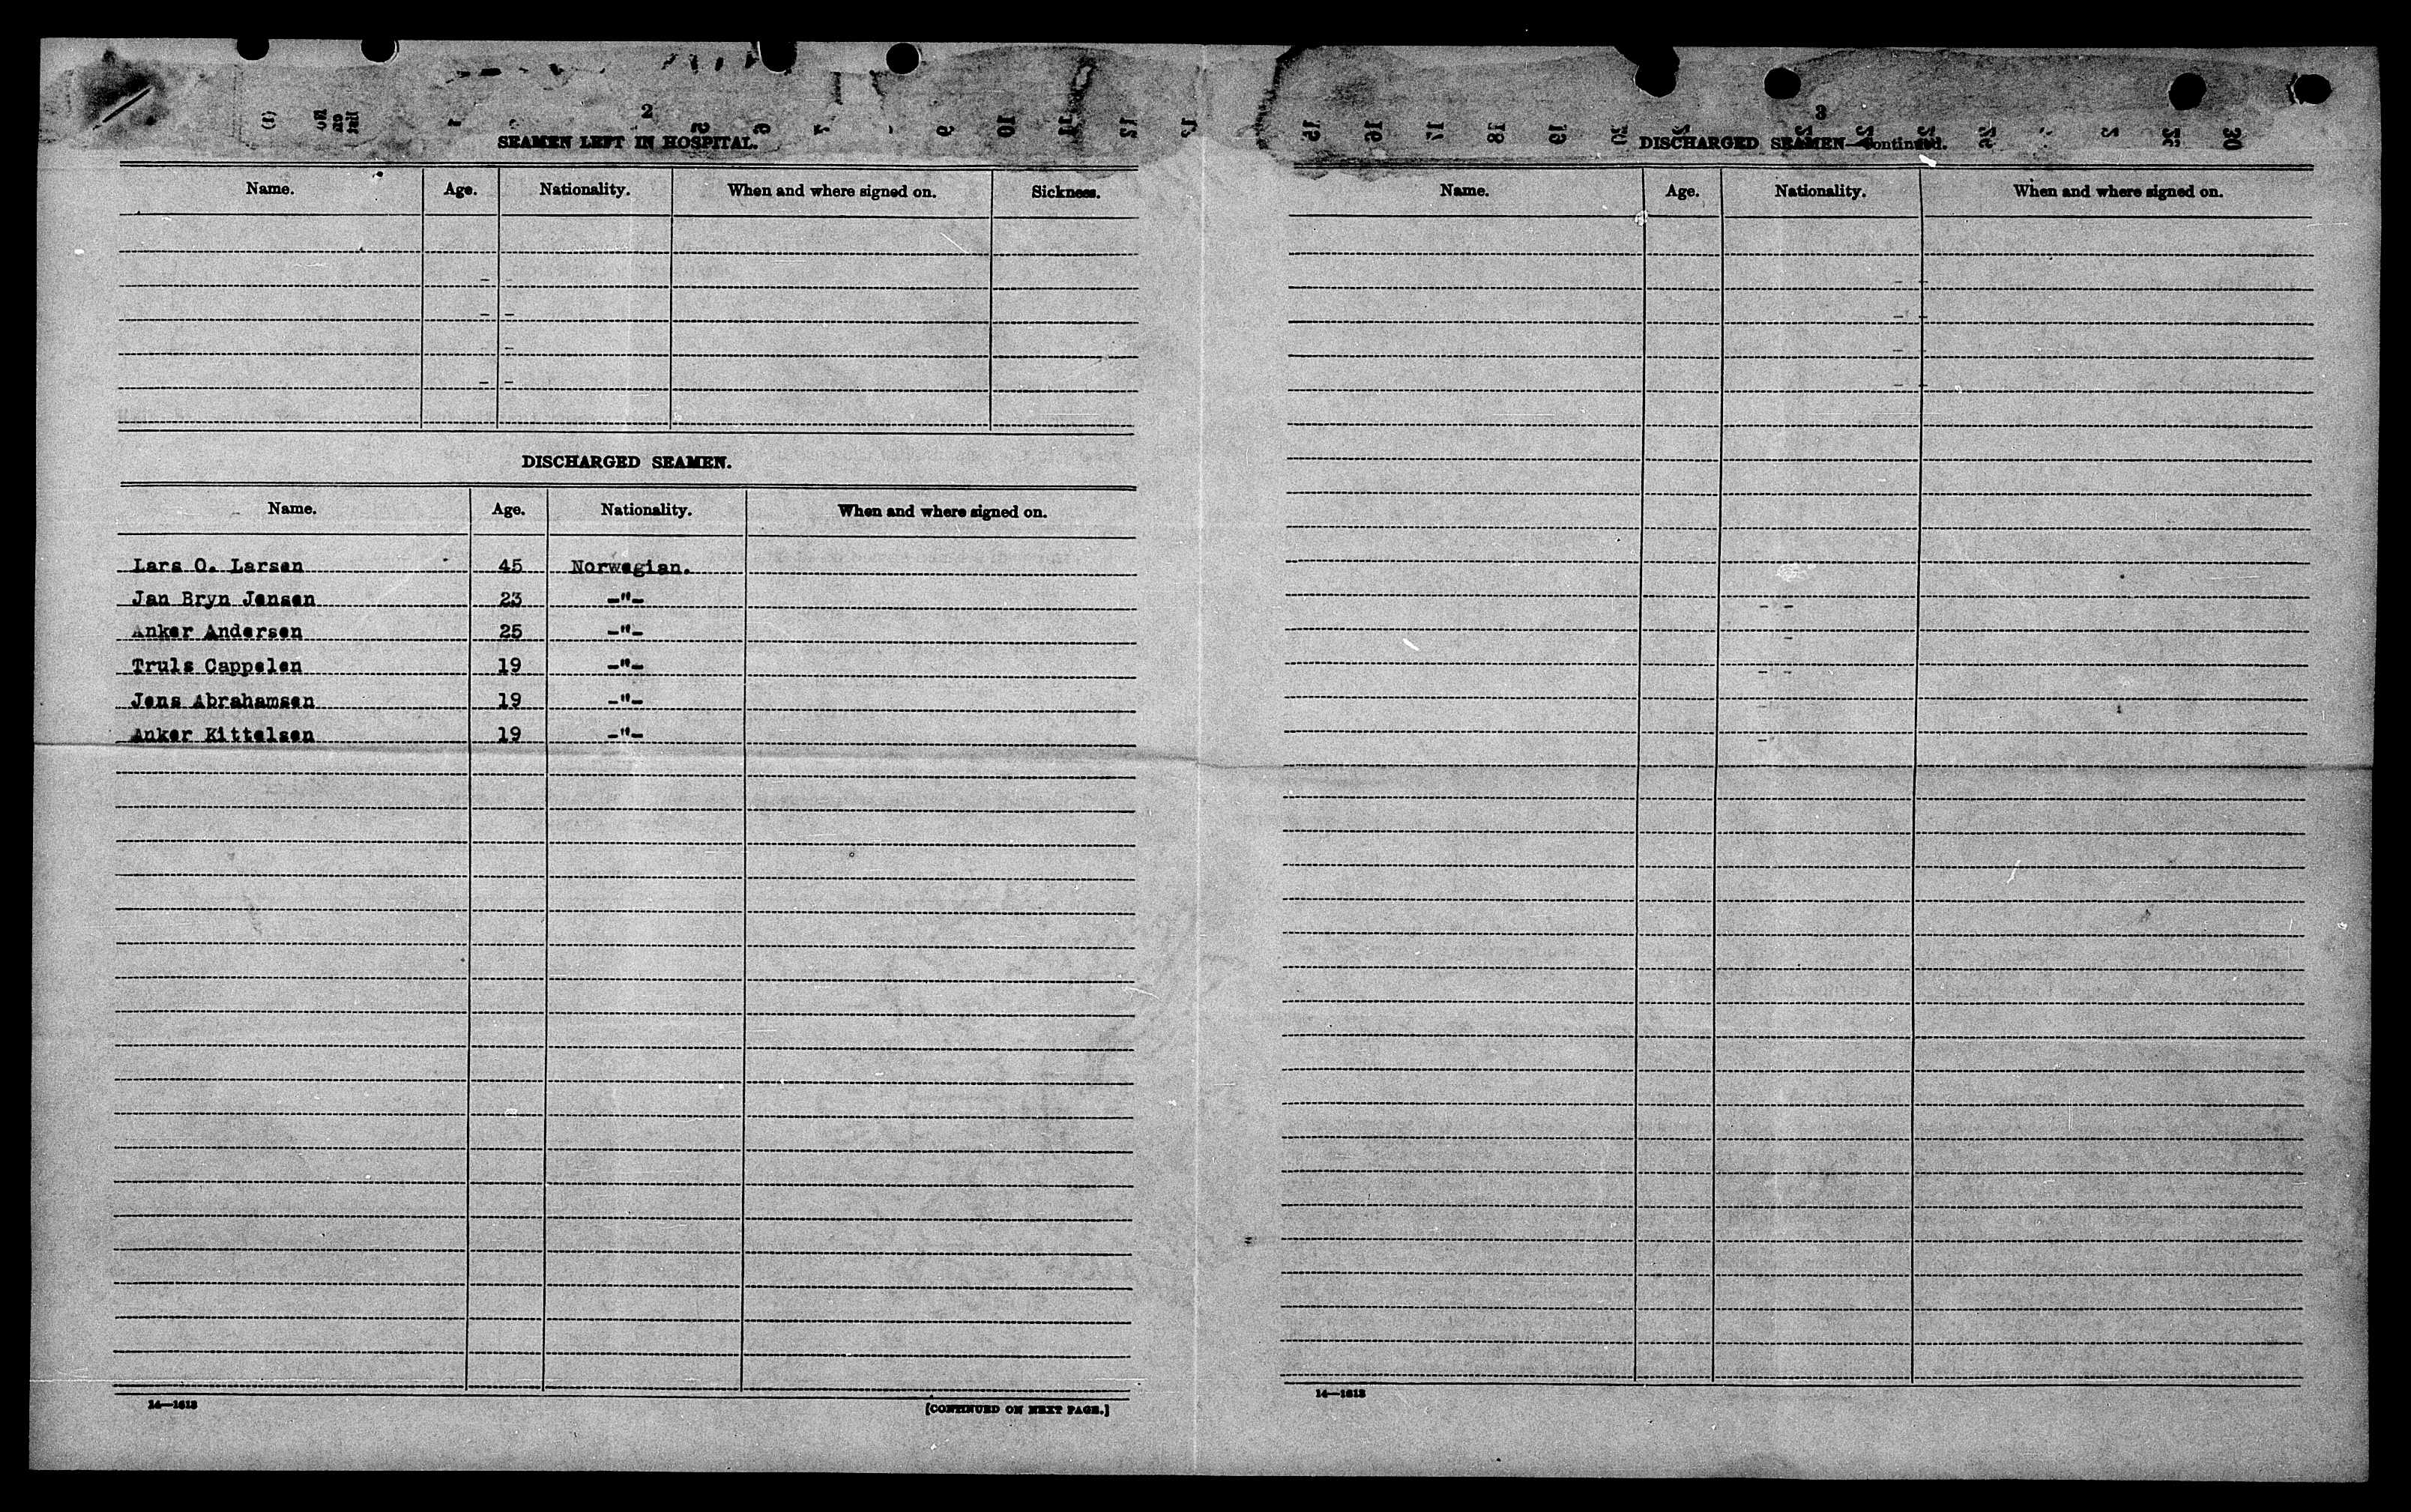 2
SEAMEN LEFT IN HOSPITAL.
Name. Age. Nationality. When and where signed on. Sickness.
DISCHARGED SEAMEN.
Name. Age. Nationality. When and where signed on.
Lars O. Larsen 45 Norwegian.
Jan Bryn Jensen 23 -"-
Anker Andersen 25 -"-
Truls Cappelen 19 -"-
Jens Abrahamsen 19 -"-
Anker Kittelsen 19 -"-
14—1613
[CONTINUED ON NEXT PAGE.]
3
DISCHARGED SEAMEN—Continued.
Name. Age. Nationality. When and where signed on.
14—1613